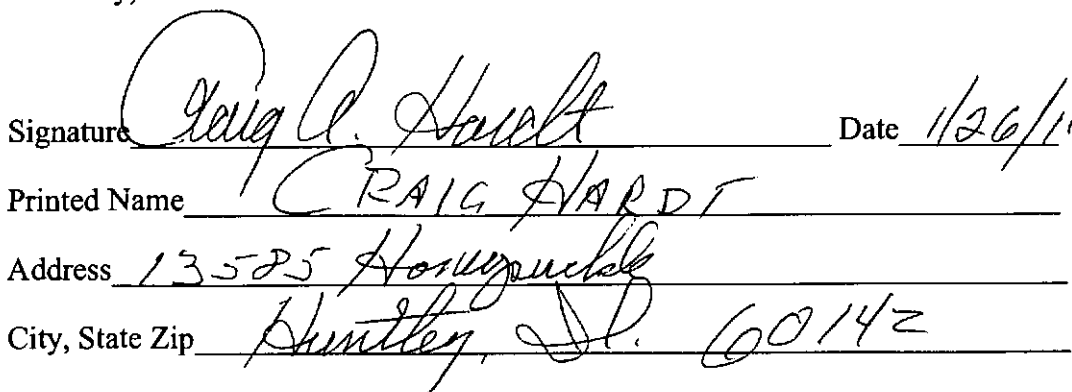 Signature Craig A. Hardt Date 1/26/1
Printed Name CRAIG HARDT
Address 13585 Honeysuckle
City, State Zip Huntley, Il. 60142